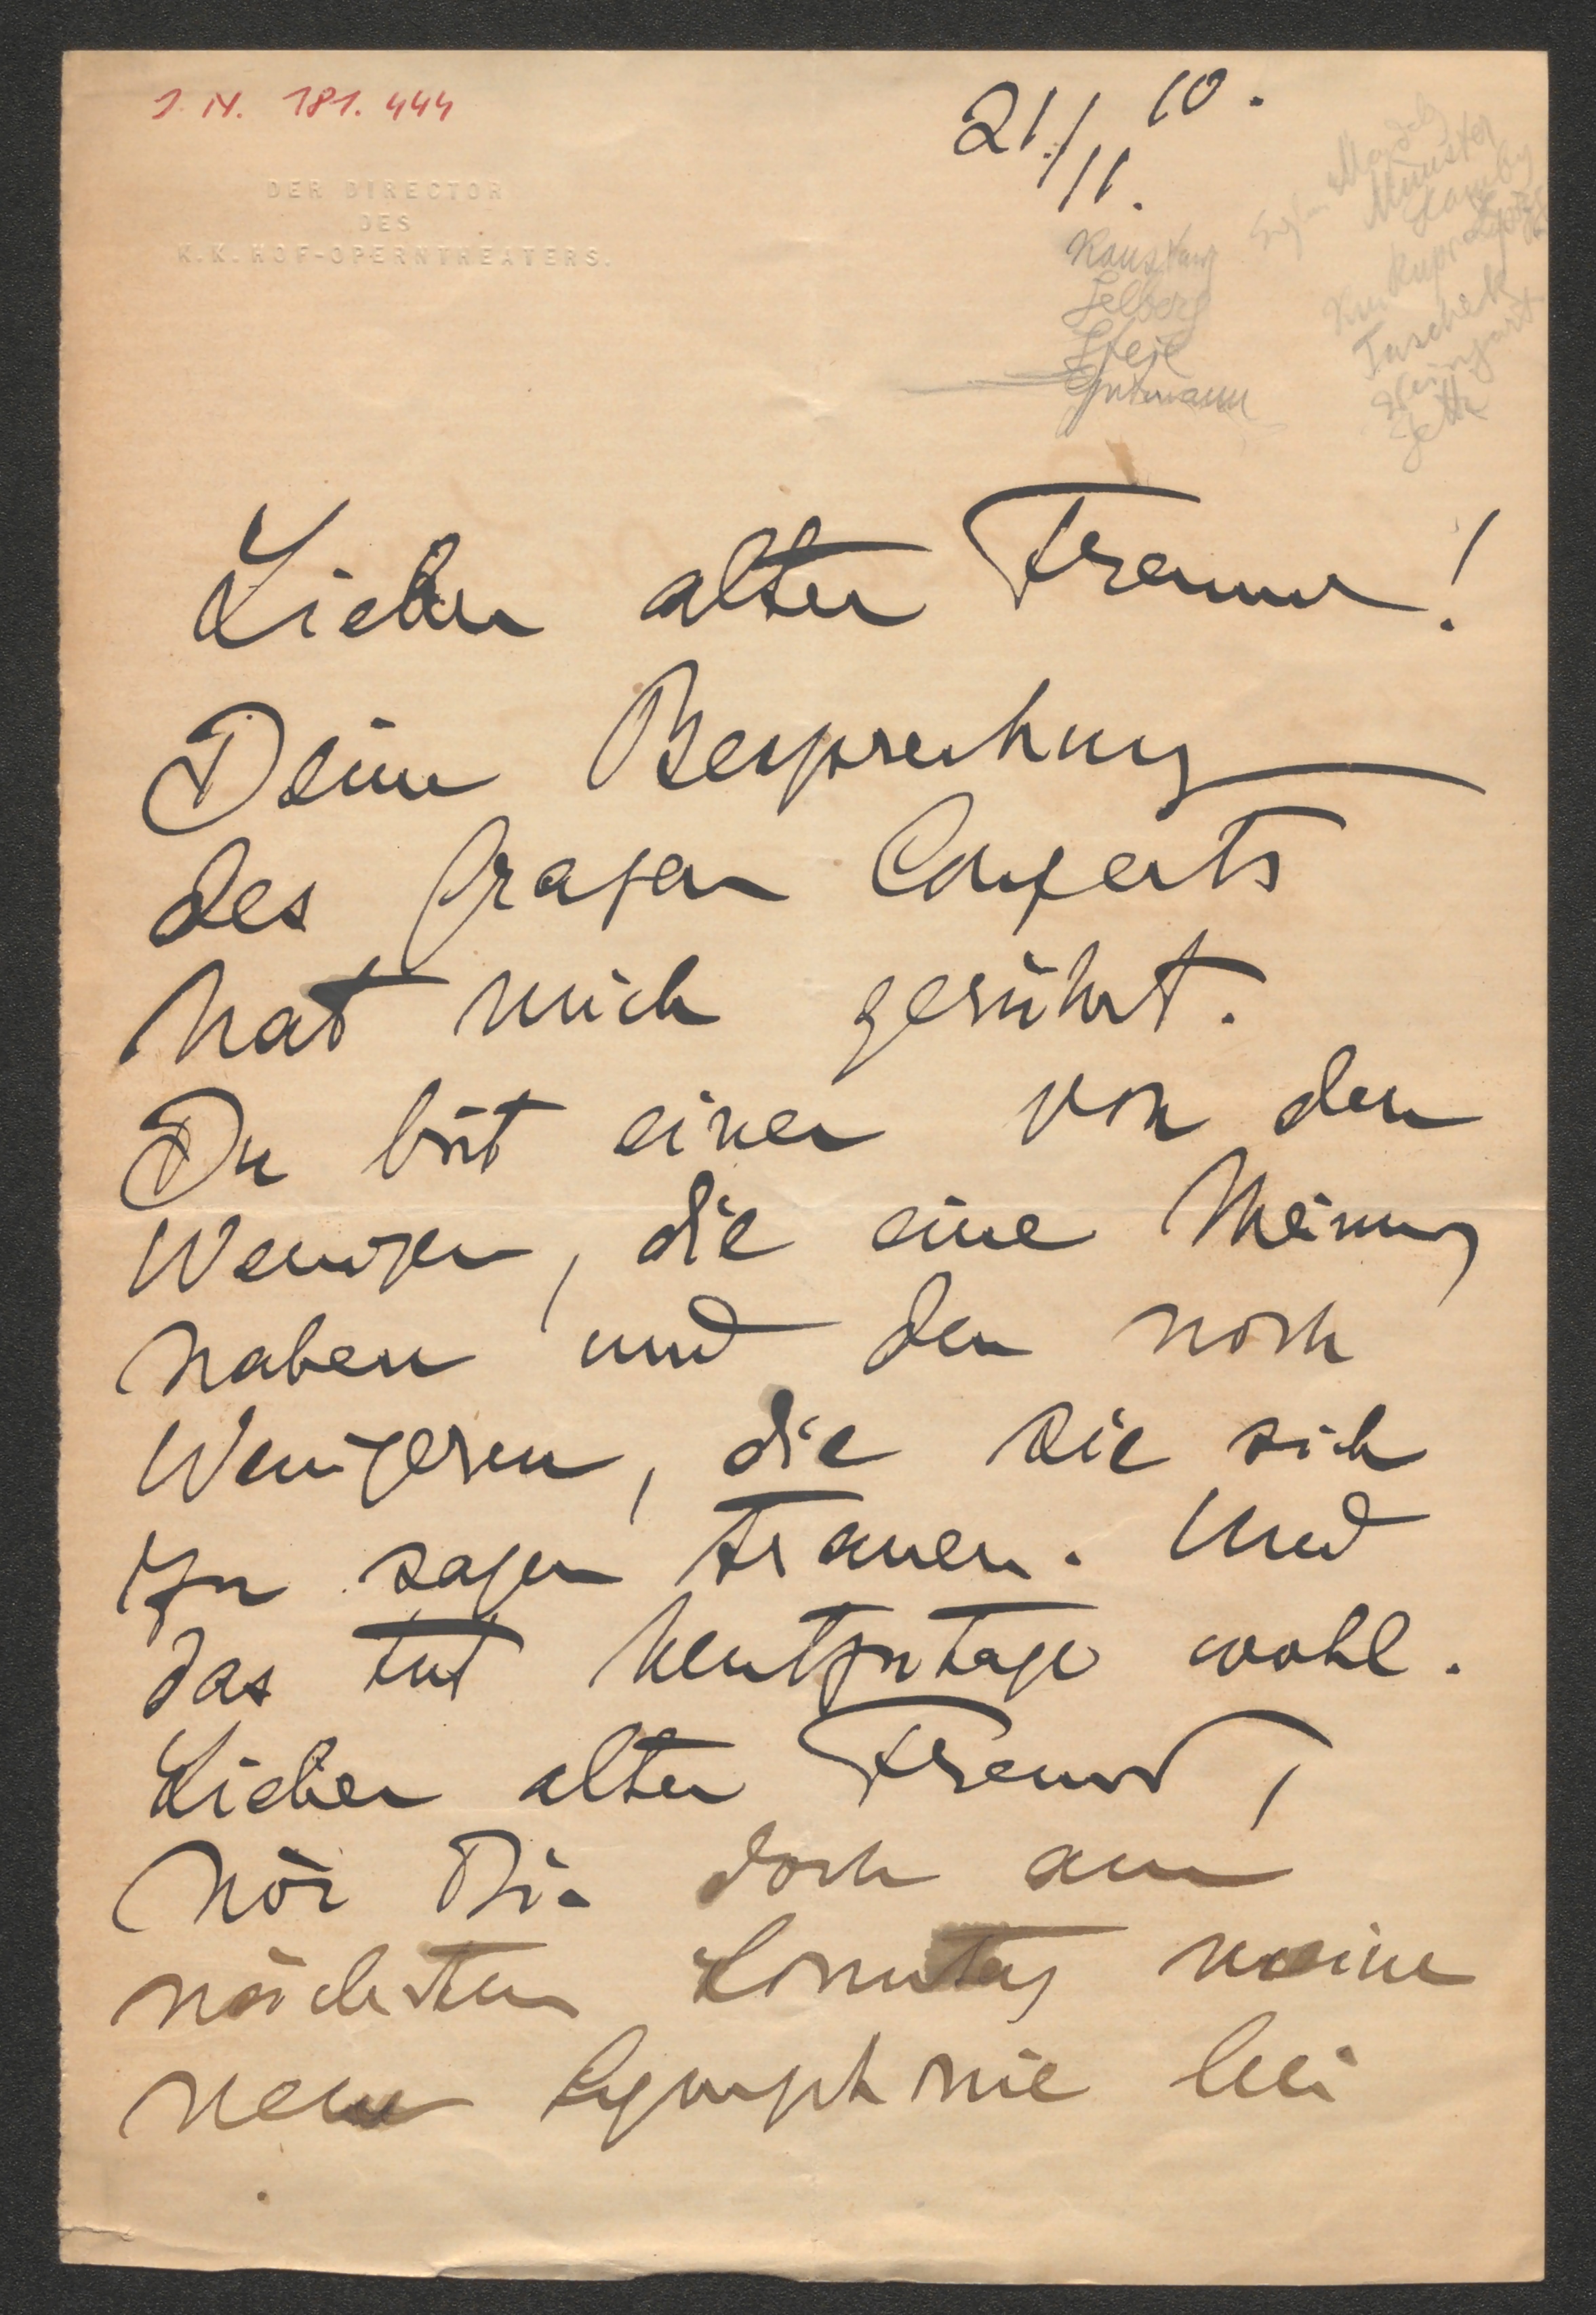 J. N. 181.444
21./11. 10.
DER DIRECTOR
DES
K. K. HOF-OPERNTHEATERS.
Gutmann
Münster
Lieber alter Freund!
Deine Besprechung
des Grazer Conzerts
hat mich gerührt.
Du bist einer von den
Wenigen, die eine Meinung
haben und den noch
Wenigeren, die sie sich
zu sagen trauen. Und
das tut heutzutage wohl.
Lieber alter Freund,
hör Dir doch am
nächsten Sonntag meine
neue Symphonie bei